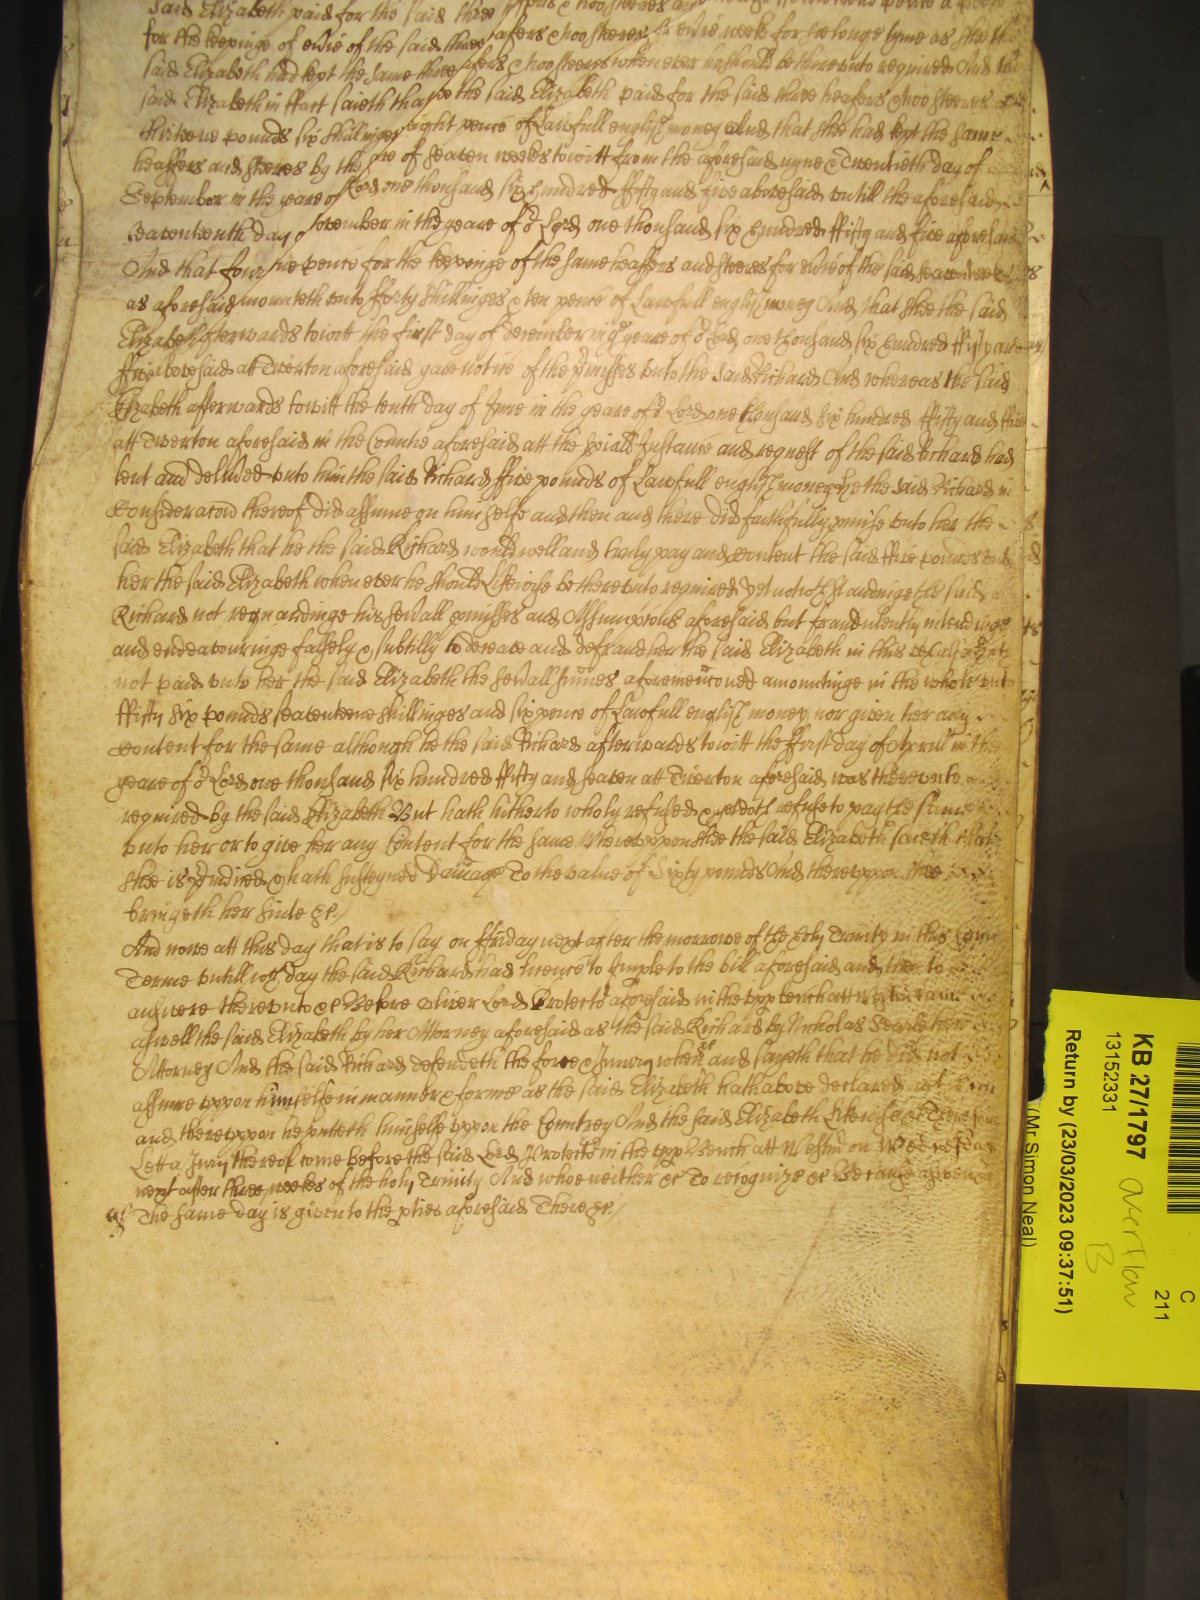 said Elizabeth paid for the said three
for the keepinge of evie of the said three heafers & twoo steeres for evie weeke for soe longe tyme as shee the
said Elizabeth had kept the same three heafers & twoo steeres when ever hee should be thereunto required And the
said Elizabeth in fact saieth that shee the said Elizabeth paid for the said three heafers & twoo steeres
thirteene pounds six shillinges eight pence of Lawfull english money And that shee had kept the same
heaffers and steeres by the space of seaven weekes towitt from the aforesaid nyne & Twentieth day of
September in the yeare of Lord one thousand six hundred ffifty and five abovesaid untill the aforesaid
Seaventeenth day November in the yeare of or Lord one thousand six hundred ffifty and five aforesaid
And that four pence for the keepinge of the same heaffers and steeres for evie of the said seaven weekes
as aforesaid mounteth unto fforty shillinges & ten pence of Lawfull english money And that shee the said
Elizabeth afterwards towitt the first day of December in ye yeare of or Lord one thousand six hundred ffifty and
ffive abovesaid att Tiverton aforesaid gave notice of the pmisses unto the said Richard And whereas the said
Elizabeth afterwards towitt the tenth day of June in the yeare of or Lord one thousand six hundred ffifty and ffive
att Tiverton aforesaid in the Countie aforesaid att the spiall Instance and request of the said Richard had
lent and delived unto him the said Richard ffive pounds of Lawfull english money he the said Richard in
Consideracon thereof did assume on himselfe and then and there did faithfully pmise unto her the
said Elizabeth that he the said Richard would well and truly pay and content the said ffive pounds unto
her the said Elizabeth when ever he should Likewise be thereunto required Yet notwthstandinge the said
Richard not regardinge his sevall pmisses and Assumptions aforesaid but fraudulently intendinge
and endeavouringe falsely & subtilly to deceave and defraud her the said Elizabeth in this behalfe hath
not paid unto her the said Elizabeth the sevall summes aforemenconed amountinge in the whole unto
ffifty six pounds seaventeene shillinges and six pence of Lawfull english money nor given her any
content for the same although he the said Richard afterwards towitt the ffirst day of Aprill in the
yeare of or Lord one thousand six hundred ffifty and seaven att Tiverton aforesaid was thereunto
required by the said Elizabeth But hath hitherto wholy refused & yet doth refuse to pay the same
unto her or to give her any Content for the same Whereuppon shee the said Elizabeth saieth that
shee is piudiced & hath susteyned Damage To the value of Sixty pounds And thereuppon shee
bringeth her suite &c./
And nowe att this day that is to say on ffriday next after the morrowe of the holy Trinity in this same
Terme untill wch day the said Richard had licence to Imple to the bill aforesaid and then to
answere thereunto &c Before Oliver Lord Protector aforesaid in the upp bench att Westm came
aswell the said Elizabeth by her Attorney aforesaid as the said Richard by Nicholas Searle his
Attorney And the said Richard defendeth the force & Iniury when &c and sayeth that he did not
assume uppon himselfe in manner & forme as the said Elizabeth hath above declared agt him
and thereuppon he putteth himselfe uppon the Countrey And the said Elizabeth Likewise &c Therefore
Lett a Iury thereof come before the said Lord Protector in the upp Bench att Westm on Wednesday
next after three weekes of the holy Trinity And whoe neither &c To recognize &c Because aswell &c
The same day is given to the pties aforesaid There &c./
KB 27/1797
13152331
Return by (23/03/2023 09:37:51)
(Mr Simon Neal)
C
211
Overflow
B